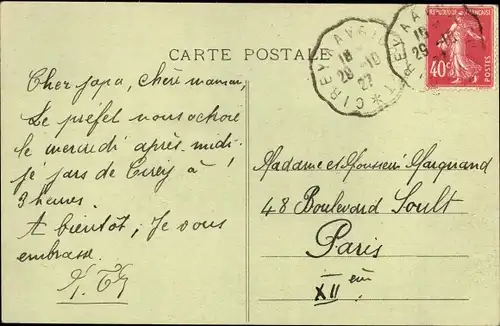 CARTE POSTALE
CIREY A AVRI
18
28-10
27
CIREY A A
18
29-10
REPUBLIQUE FRANÇAISE
40c
POSTES
Cher papa, chère maman,
Le préfet nous
le mercredi après-midi
je pars de Cirey à
3 heures.
A bientôt, Je vous
embrasse.
Madame et Monsieur Marquand
48 Boulevard Soult
Paris
XII em